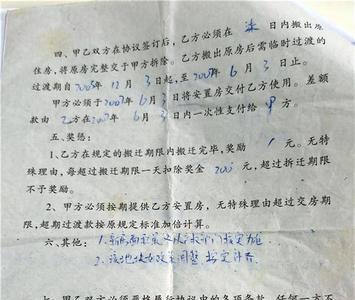 四、甲乙双方在协议签订后，乙方必须在 日内搬出原
住房，将原房完整交于甲方拆除。乙方搬出原房后需临时过渡的
过渡期自2005年12月3日起，至2007年6月3日止。
甲方必须于2007年6月3日将安置房交付乙方使用。差额
款由乙方在2007年6月3日内一次性支付给甲方。
五、奖惩：
1、乙方在规定的搬迁期限内搬迁完毕，奖励 元。无特
殊理由，每超过搬迁期限一天扣除奖金200元，超过拆迁期限
不予奖励。
2、甲方必须按期提供乙方安置房，无特殊理由超过交房期
限，超期过渡款按原规定标准加倍计算。
六、其他：1.
2.
七、甲乙双方必须严格履行协议中的各项条款，任何一方不